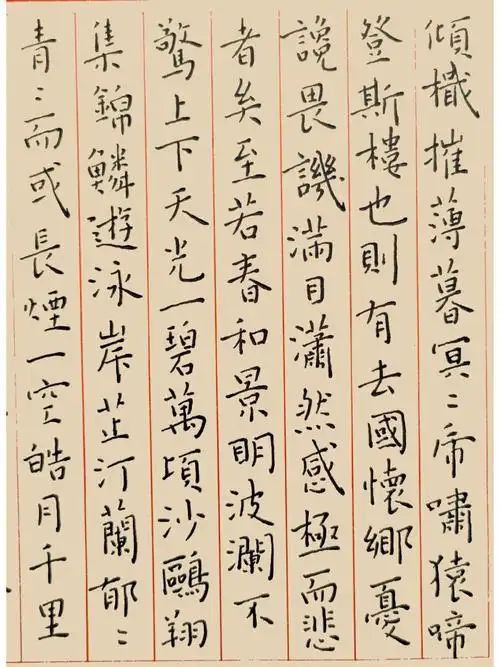 傾檝摧薄暮冥〻乕嘯猿啼
登斯樓也則有去國懷鄉憂
讒畏譏滿目瀟然感極而悲
者矣至若春和景明波瀾不
驚上下天光一碧萬頃沙鷗翔
集錦鱗遊泳岸芷汀蘭郁〻
青〻而或長煙一空皓月千里